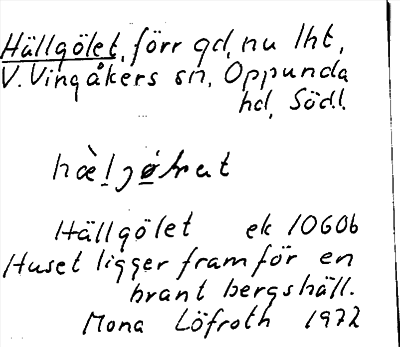 Hällgölet, förr gd, nu lht,
V. Vingåkers sn, Oppunda
hd, Södl.
Hällgölet ek 10G0b
Huset ligger framför en
brant bergshäll.
Mona Löfroth 1972